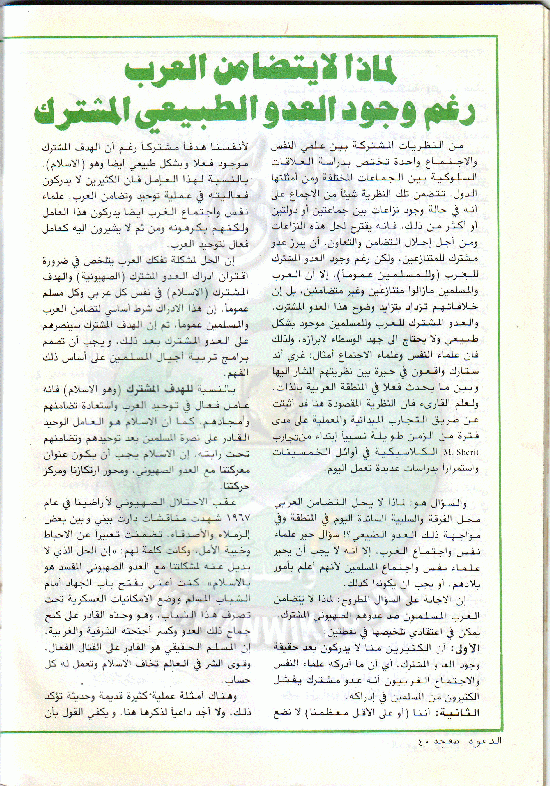 لماذا لا يتضامن العرب
رغم وجود العدو الطبيعي المشترك
من النظريات المشتركة بين علمي النفس
والاجتماع واحدة تختص بدراسة العلاقات
السلوكية بين الجماعات المختلفة ومن أمثلتها
الدول. تتضمن تلك النظرية شيئاً من الاجماع على
أنه في حالة وجود نزاعات بين جماعتين أو دولتين
أو أكثر من ذلك. فانه يقترح لحل هذه النزاعات
ومن أجل إحلال التضامن والتعاون. أن يبرز عدو
مشترك للمتنازعين، ولكن رغم وجود العدو المشترك
للعرب (وللمسلمين عموماً). إلا أن العرب
والمسلمين مازالوا متنازعين وغير متضامنين، بل إن
خلافاتهم تزداد بتزايد وضوح هذا العدو المشترك.
والعدو المشترك للعرب وللمسلمين موجود بشكل
طبيعي ولا يحتاج الى جهد الوسطاء لابرازه، ولذلك
فان علماء النفس وعلماء الاجتماع أمثال: غري أند
ستارك واقعون في حيرة بين نظريتهم المشار اليها
وبين ما يحدث فعلاً في المنطقة العربية بالذات.
وليعلم القارىء فان النظرية المقصودة هنا قد أثبتت
عن طريق التجارب الميدانية والمعملية على مدى
فترة من الزمن طويلة نسبياً إبتداء من تجارب
M. Sherif الكلاسيكية في أوائل الخمسينات
واستمراراً بدراسات عديدة تعمل اليوم.
والسؤال هو: لماذا لا يحل التضامن العربي
محل الفرقة والسلبية السائدة اليوم في المنطقة وفي
مواجهة ذلك العدو الطبيعي؟! سؤال حير علماء
نفس واجتماع الغرب. إلا أنه لا يجب أن يحير
علماء نفس واجتماع المسلمين لأنهم أعلم بأمور
بلادهم. أو يجب أن يكونوا كذلك.
إن الاجابة على السؤال المطروح: لماذا لا يتضامن
العرب المسلمون ضد عدوهم الصهيوني المشترك.
يمكن في اعتقادي تلخيصها في نقطتين:
الأولى: أن الكثيرين منا لا يدركون بعد حقيقة
وجود العدو المشترك. أي أن ما أدركه علماء النفس
والاجتماع الغربيون أنه عدو مشترك يفشل
الكثيرون من المسلمين في إدراكه.
الثانية: أننا (أو على الأقل معظمنا) لا نضع
لأنفسنا هدفاً مشتركاً رغم أن الهدف المشترك
موجود فعلاً وبشكل طبيعي أيضاً وهو (الاسلام).
بالنسبة لهذا العامل فان الكثيرين لا يدركون
فعاليته في عملية توحيد وتضامن العرب. علماء
نفس واجتماع الغرب أيضاً يدركون هذا العامل
ولكنهم يكرهونه ومن ثم لا يشيرون اليه كعامل
فعال لتوحيد العرب.
إن الحل لمشكلة تفكك العرب يتلخص في ضرورة
اقتران ادراك العدو المشترك (الصهيونية) والهدف
المشترك (الاسلام) في نفس كل عربي وكل مسلم
عموماً. إن هذا الادراك شرط أساسي لتضامن العرب
والمسلمين عموماً. ثم إن الهدف المشترك سينصرهم
على العدو المشترك بعد ذلك. ويجب أن تصمم
برامج تربية أجيال المسلمين على أساس ذلك
الفهم.
بالنسبة للهدف المشترك (وهو الاسلام) فانه
عامل فعال في توحيد العرب واستعادة تضامنهم
وأمجادهم. كما أن الاسلام هو العامل الوحيد
القادر على نصرة المسلمين بعد توحيدهم وتضامنهم
تحت رايته. إن الاسلام يجب أن يكون عنوان
معركتنا مع العدو الصهيوني، ومحور ارتكازنا ومركز
حركتنا.
عقب الاحتلال الصهيوني لأراضينا في عام
١٩٦٧ شهدت مناقشات دارت بيني وبين بعض
الزملاء والأصدقاء. تضمنت تعبيراً عن الاحباط
وخيبة الأمل. وكانت كلمة لهم: «إن الحل الذي لا
بديل عنه لمشكلتنا مع العدو الصهيوني المفسد هو
بالاسلام». كنت أعني بفتح باب الجهاد أمام
الشباب المسلم ووضع الامكانيات العسكرية تحت
تصرف هذا الشباب. وهو وحده القادر على كبح
جماح ذلك العدو وكسر أجنحته الشرقية والغربية.
إن المسلم الحقيقي هو القادر على القتال الفعال.
وقوى الشر في العالم تخاف الاسلام وتعمل له كل
حساب.
وهناك أمثلة عملية كثيرة قديمة وحديثة تؤكد
ذلك. ولا أجد داعياً لذكرها هنا. ويكفي القول بأن
الدعوة صفحة ٤٠